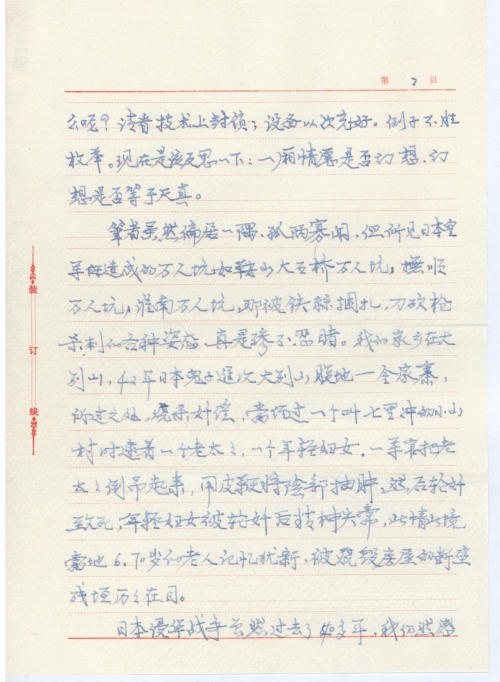 第 2 頁
么呢？读者技术上封锁；设备以次充好。例子不胜
枚举。现在是该反思一下：一厢情愿是否幻想，幻
想是否等于天真。
筆者虽然偏居一隅，孤陋寡闻，但所见日本皇
军所造成的万人坑如鞍山大石桥万人坑，撫順
万人坑，淮南万人坑，那被铁絲捆扎，刀砍枪
杀刺的各种姿态，真是惨不忍睹。我的家乡在大
别山，42年日本鬼子进攻大别山腹地—金家寨，
所过之处，烧杀奸淫，當经过一个叫七里冲的小山
村时逮着一个老太々，一个年轻妇女，一羊官把老
太々倒吊起来，用皮鞭将陰部抽肿，然后轮奸
致死，年轻妇女被轮奸后精神失常，此情此境
當地6、70岁的老人记忆犹新，被毁段房屋的断壁
残垣历々在目。
日本侵华战争虽然过去了40多年，我们
装
訂
线